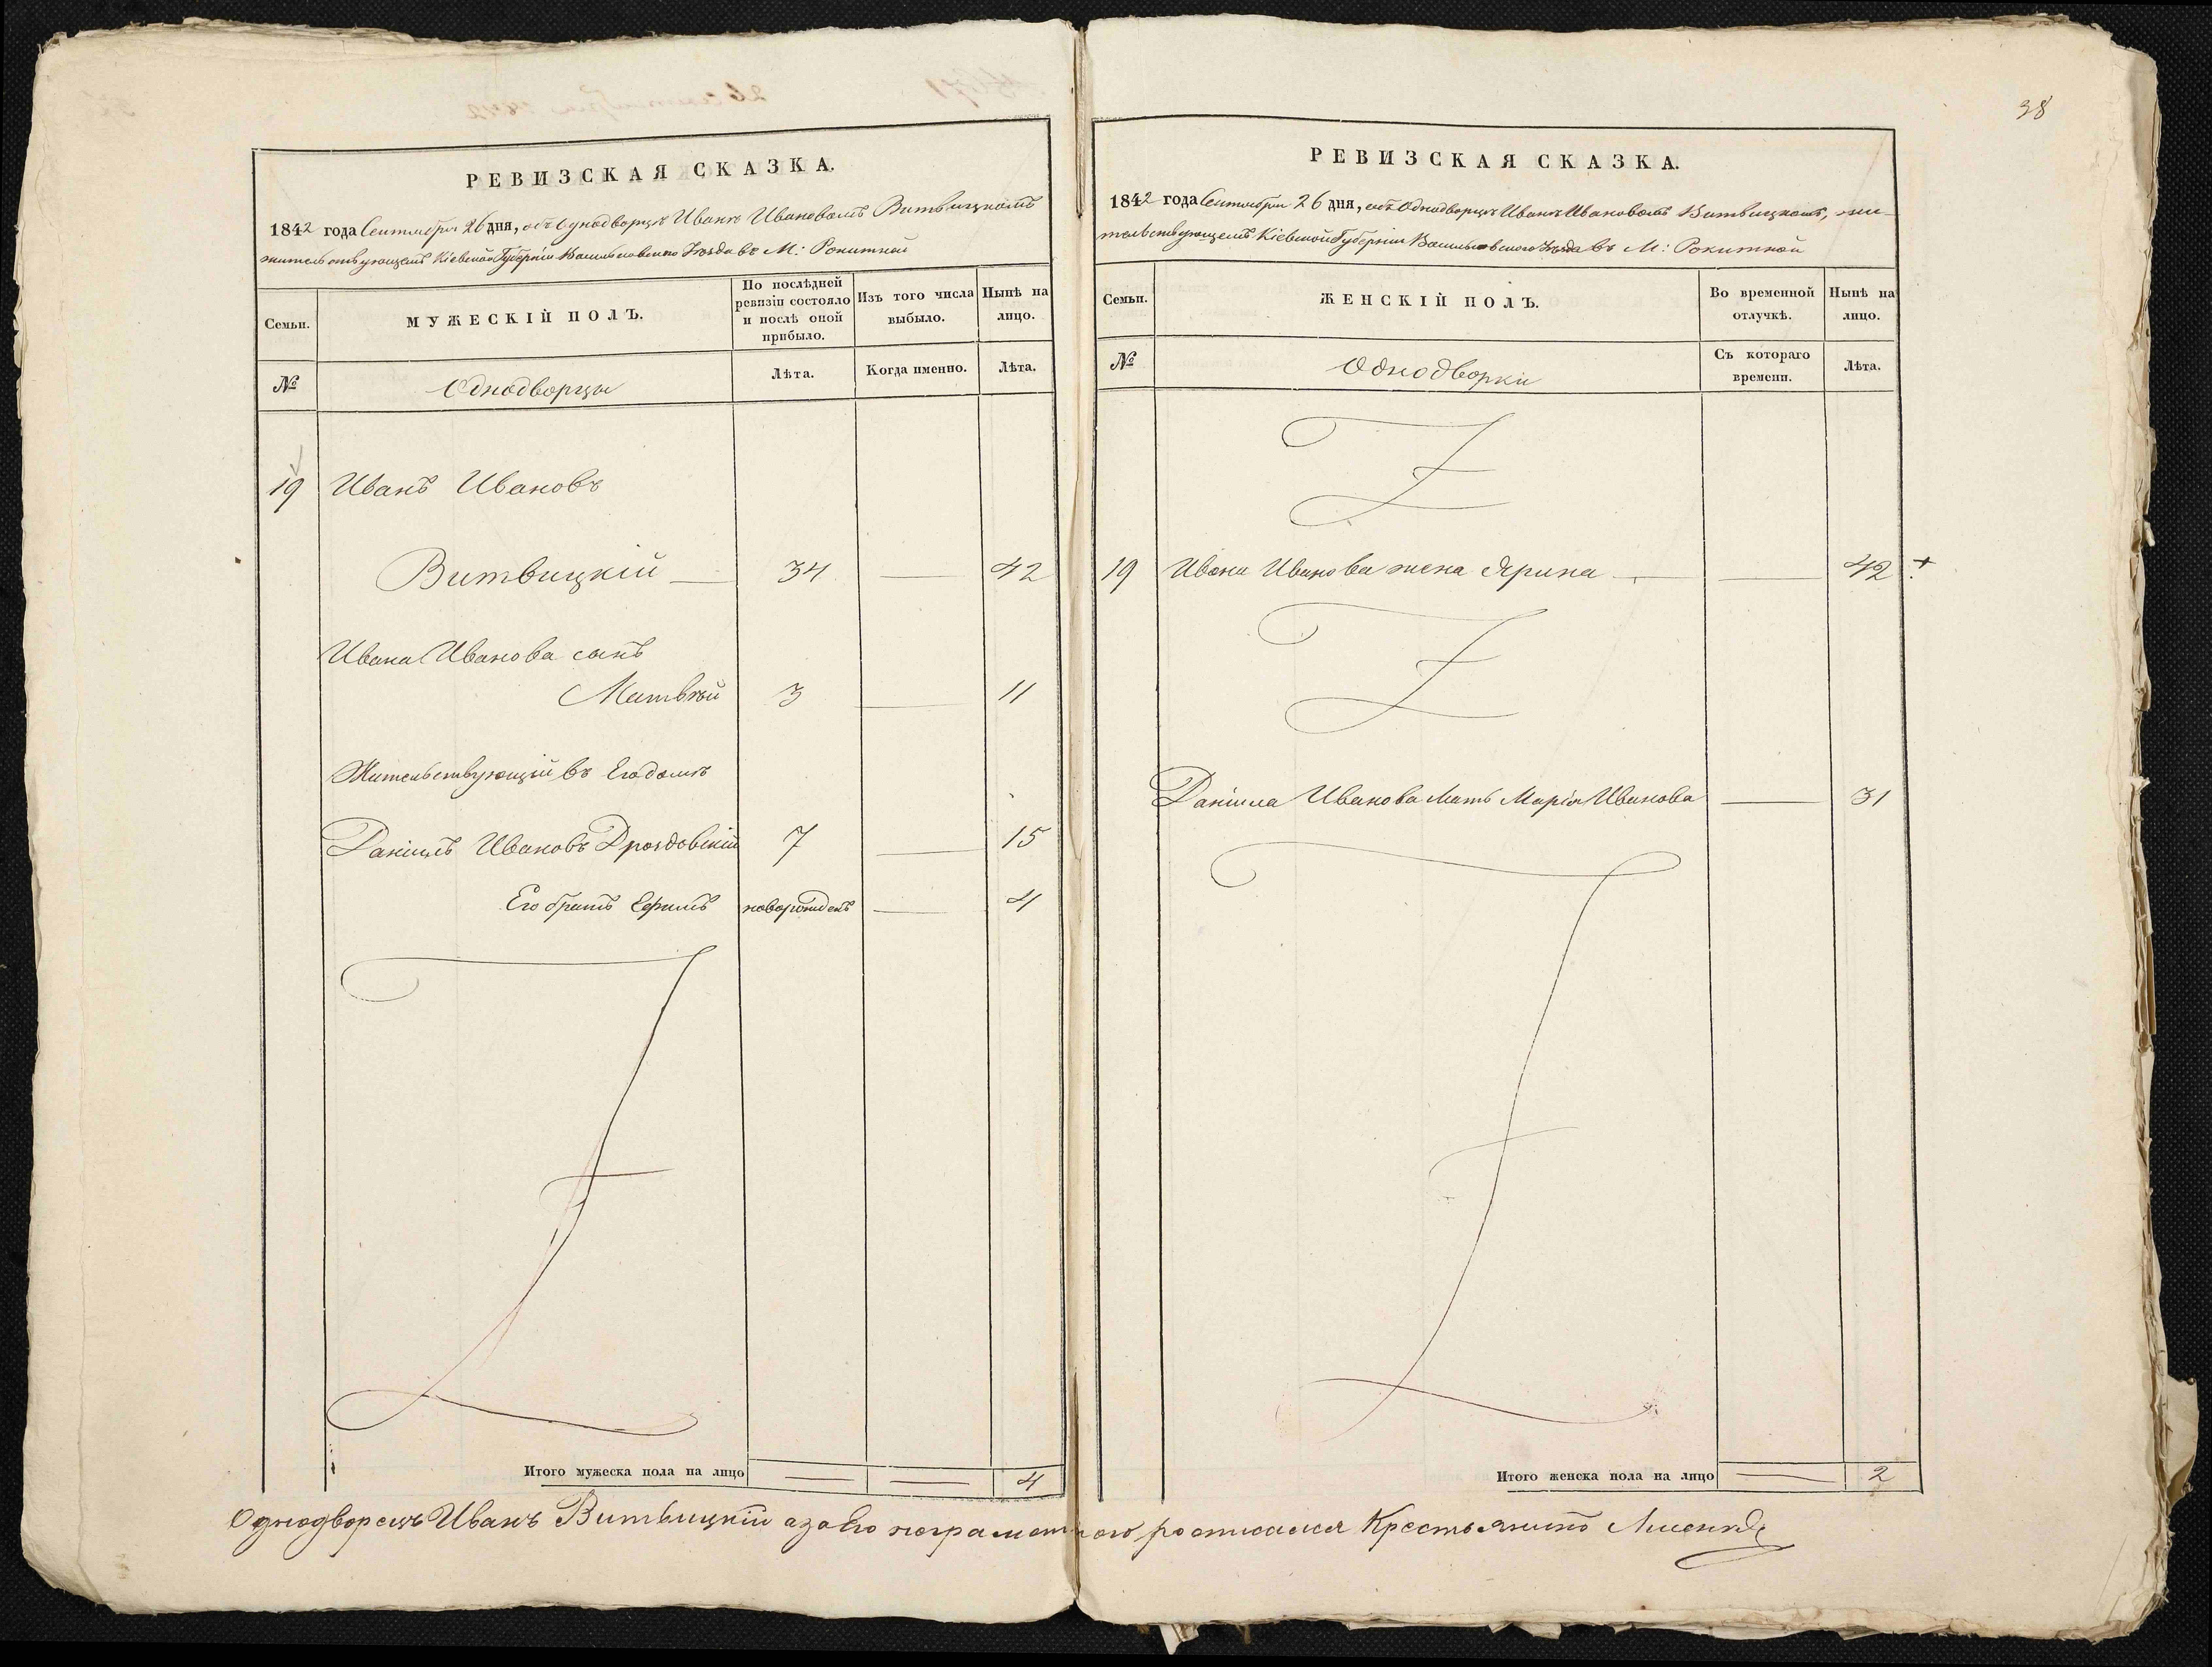 38
РЕВИЗСКАЯ СКАЗКА.
1842 года Сентября 26 дня, объ Однодворцѣ Иванѣ Ивановомъ Витвицкомъ
жительствующемъ Кіевской Губерніи Васильковскаго Уѣзда въ М: Рокитной
Семьи.
МУЖЕСКІЙ ПОЛЪ.
По послѣдней
ревизіи состояло
и послѣ оной
прибыло.
Изъ того числа
выбыло.
Нынѣ на
лицо.
№
Однодворцы
Лѣта.
Когда именно.
Лѣта.
19 Иванъ Ивановъ
Витвицкій — 34 — 42
Ивана Иванова сынъ
Матвѣй 3 — 11
Жительствующій въ Его домѣ
Даніилъ Ивановъ Дроздовскій 7 — 15
Его братъ Ефимъ новорожденъ — 4
Итого мужеска пола на лицо 4
РЕВИЗСКАЯ СКАЗКА.
1842 года Сентября 26 дня, объ Однодворцѣ Иванѣ Ивановомъ Витвицкомъ, жи-
тельствующемъ Кіевской Губерніи Васильковскаго Уѣзда въ М: Рокитной
Семьи.
ЖЕНСКІЙ ПОЛЪ.
Во временной
отлучкѣ.
Нынѣ на
лицо.
№
Однодворки
Съ котораго
времени.
Лѣта.
19 Ивана Иванова жена Ярина — — 42 +
Даніила Иванова мать Марія Иванова — 31
Итого женска пола на лицо 2
Однодворецъ Иванъ Витвицкій а за его неграматного росписался Крестьянинъ